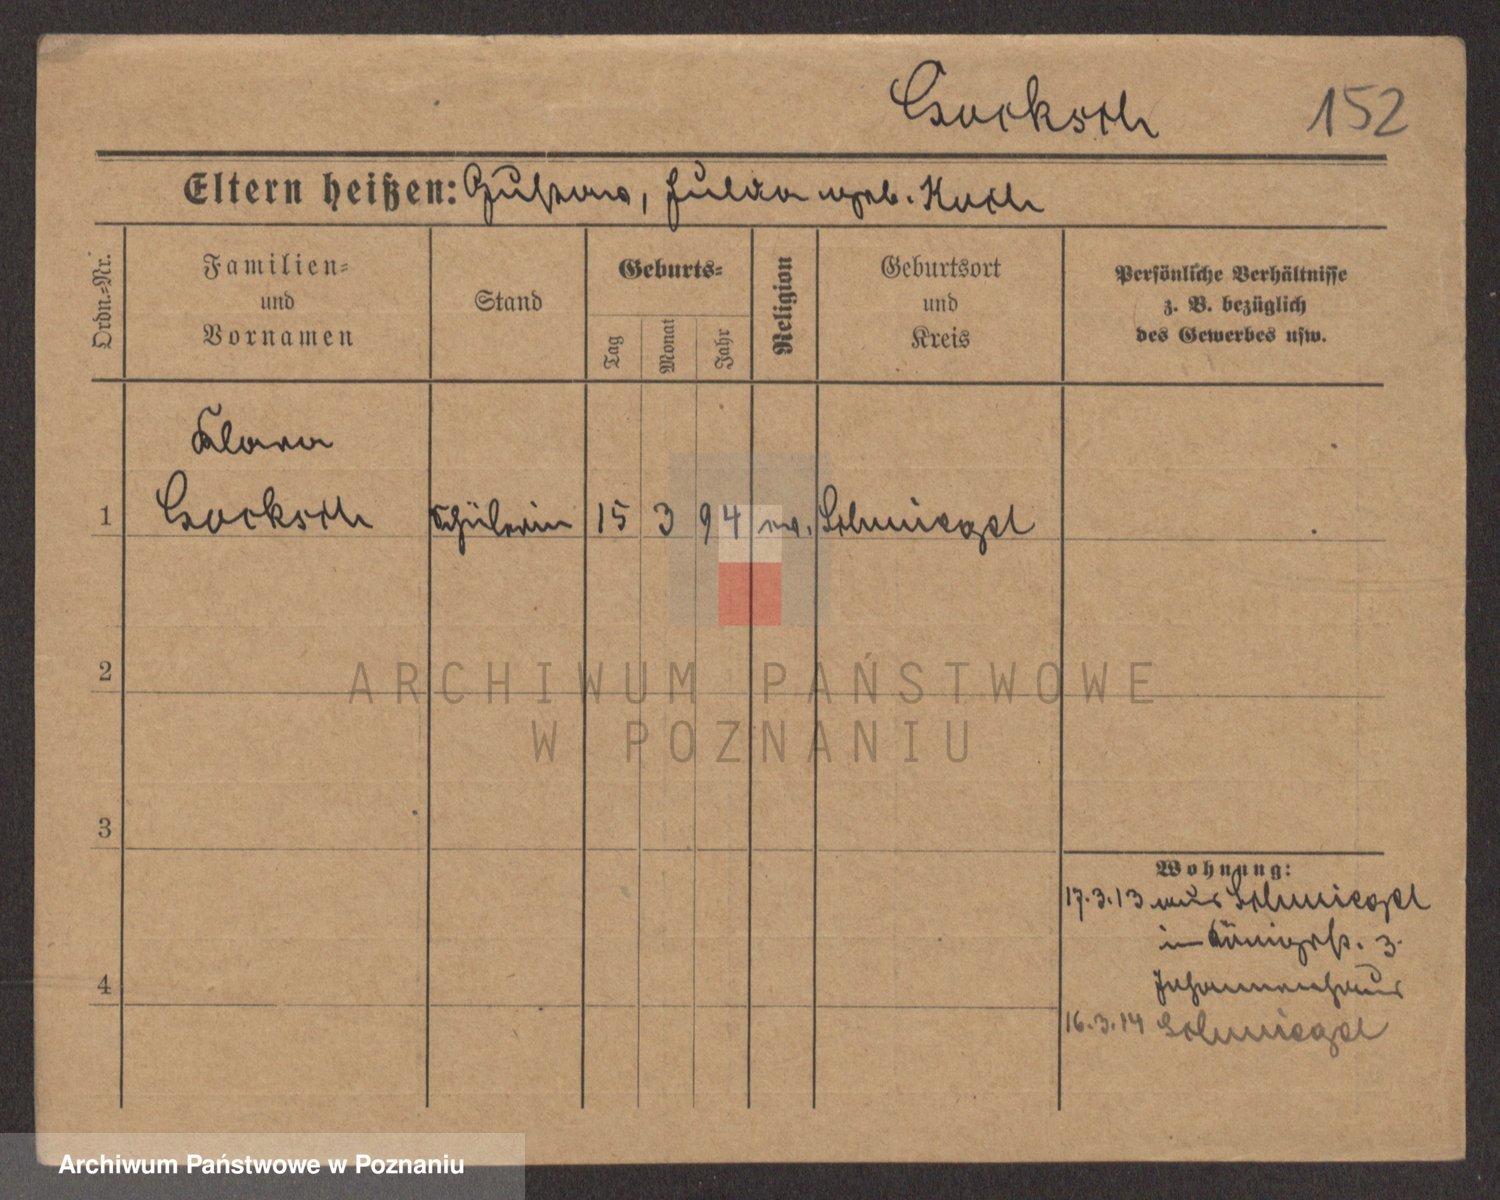 Bocksch 152
Eltern heißen: Gustav, Hulda geb. Koch
Ordn.=Nr.
Familien=
und
Vornamen
Stand
Geburts=
Tag
Monat
Jahr
Religion
Geburtsort
und
Kreis
Persönliche Verhältnisse
z. B. bezüglich
des Gewerbes usw.
Klara
1 Bocksch Schülerin 15 3 94 ev. Schmiegel
2
3
4
Wohnung:
17.3.13 aus Schmiegel
in Königstr. 3.
16.3.14 Schmiegel
ARCHIWUM PAŃSTWOWE
W POZNANIU
Archiwum Państwowe w Poznaniu